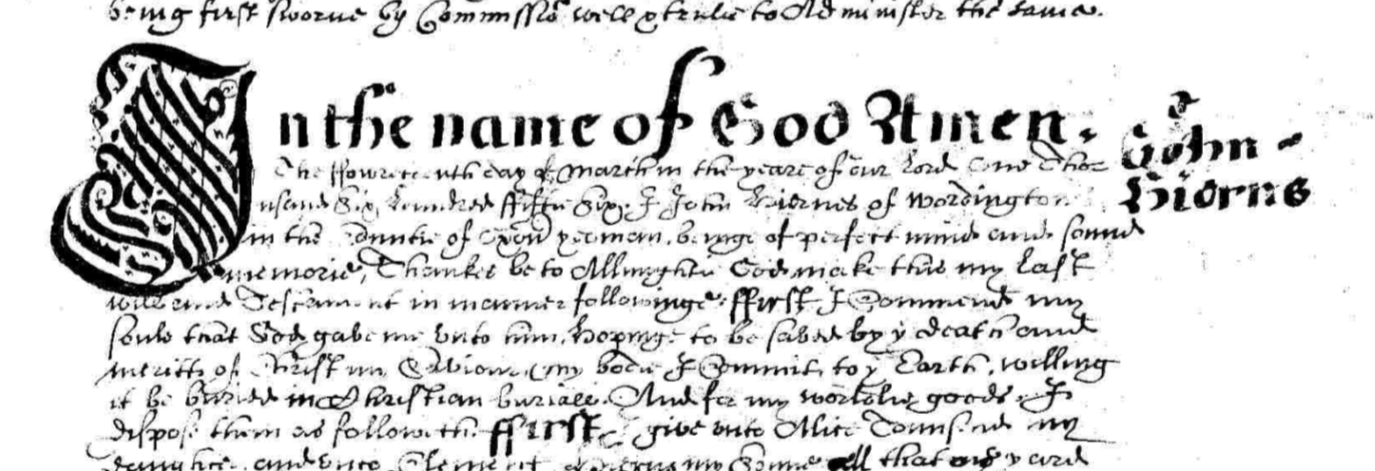 being first sworne by Commissio well & trulie to Administer the same.
In the name of God Amen.
John
Hiorns
The ffowreteenth day of March in the yeare of our Lord One Thou
usand Six hundred ffiftie Six. I John Hiernes of Wordington
in the Countie of Oxon yeoman, beinge of perfect minde and sound
memorie, Thankes be to Allmightie God make this my last
will and Testament in manner followinge. ffirst I Commend my
soule that God gave me unto him, hopinge to be saved by ye death and
meritts of Christ my Saviour, my bodie I Commit to ye Earth, willing
it be buried in Christian buriall. And for my worldlie goods I
dispose them as followeth. ffirst I give unto Alice Townsend my
daughter, and unto Clement my Sonne all that yard